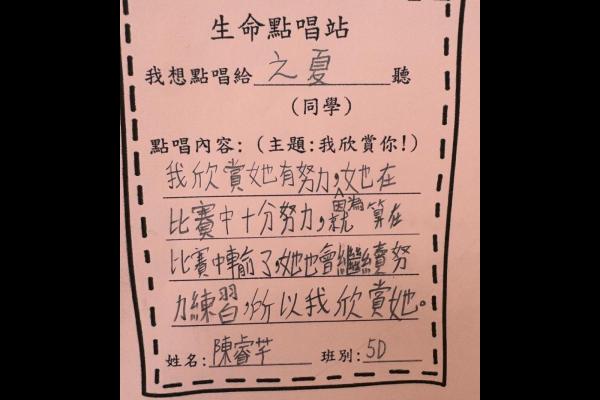 生命點唱站
我想點唱給 之夏 聽
(同學)
點唱內容:(主題:我欣賞你!)
我欣賞她有努力,她在
比賽中十分努力,因為就算在
比賽中輸了,她也會繼續努
力練習,所以我欣賞她。
姓名:陳睿芊 班別:5D